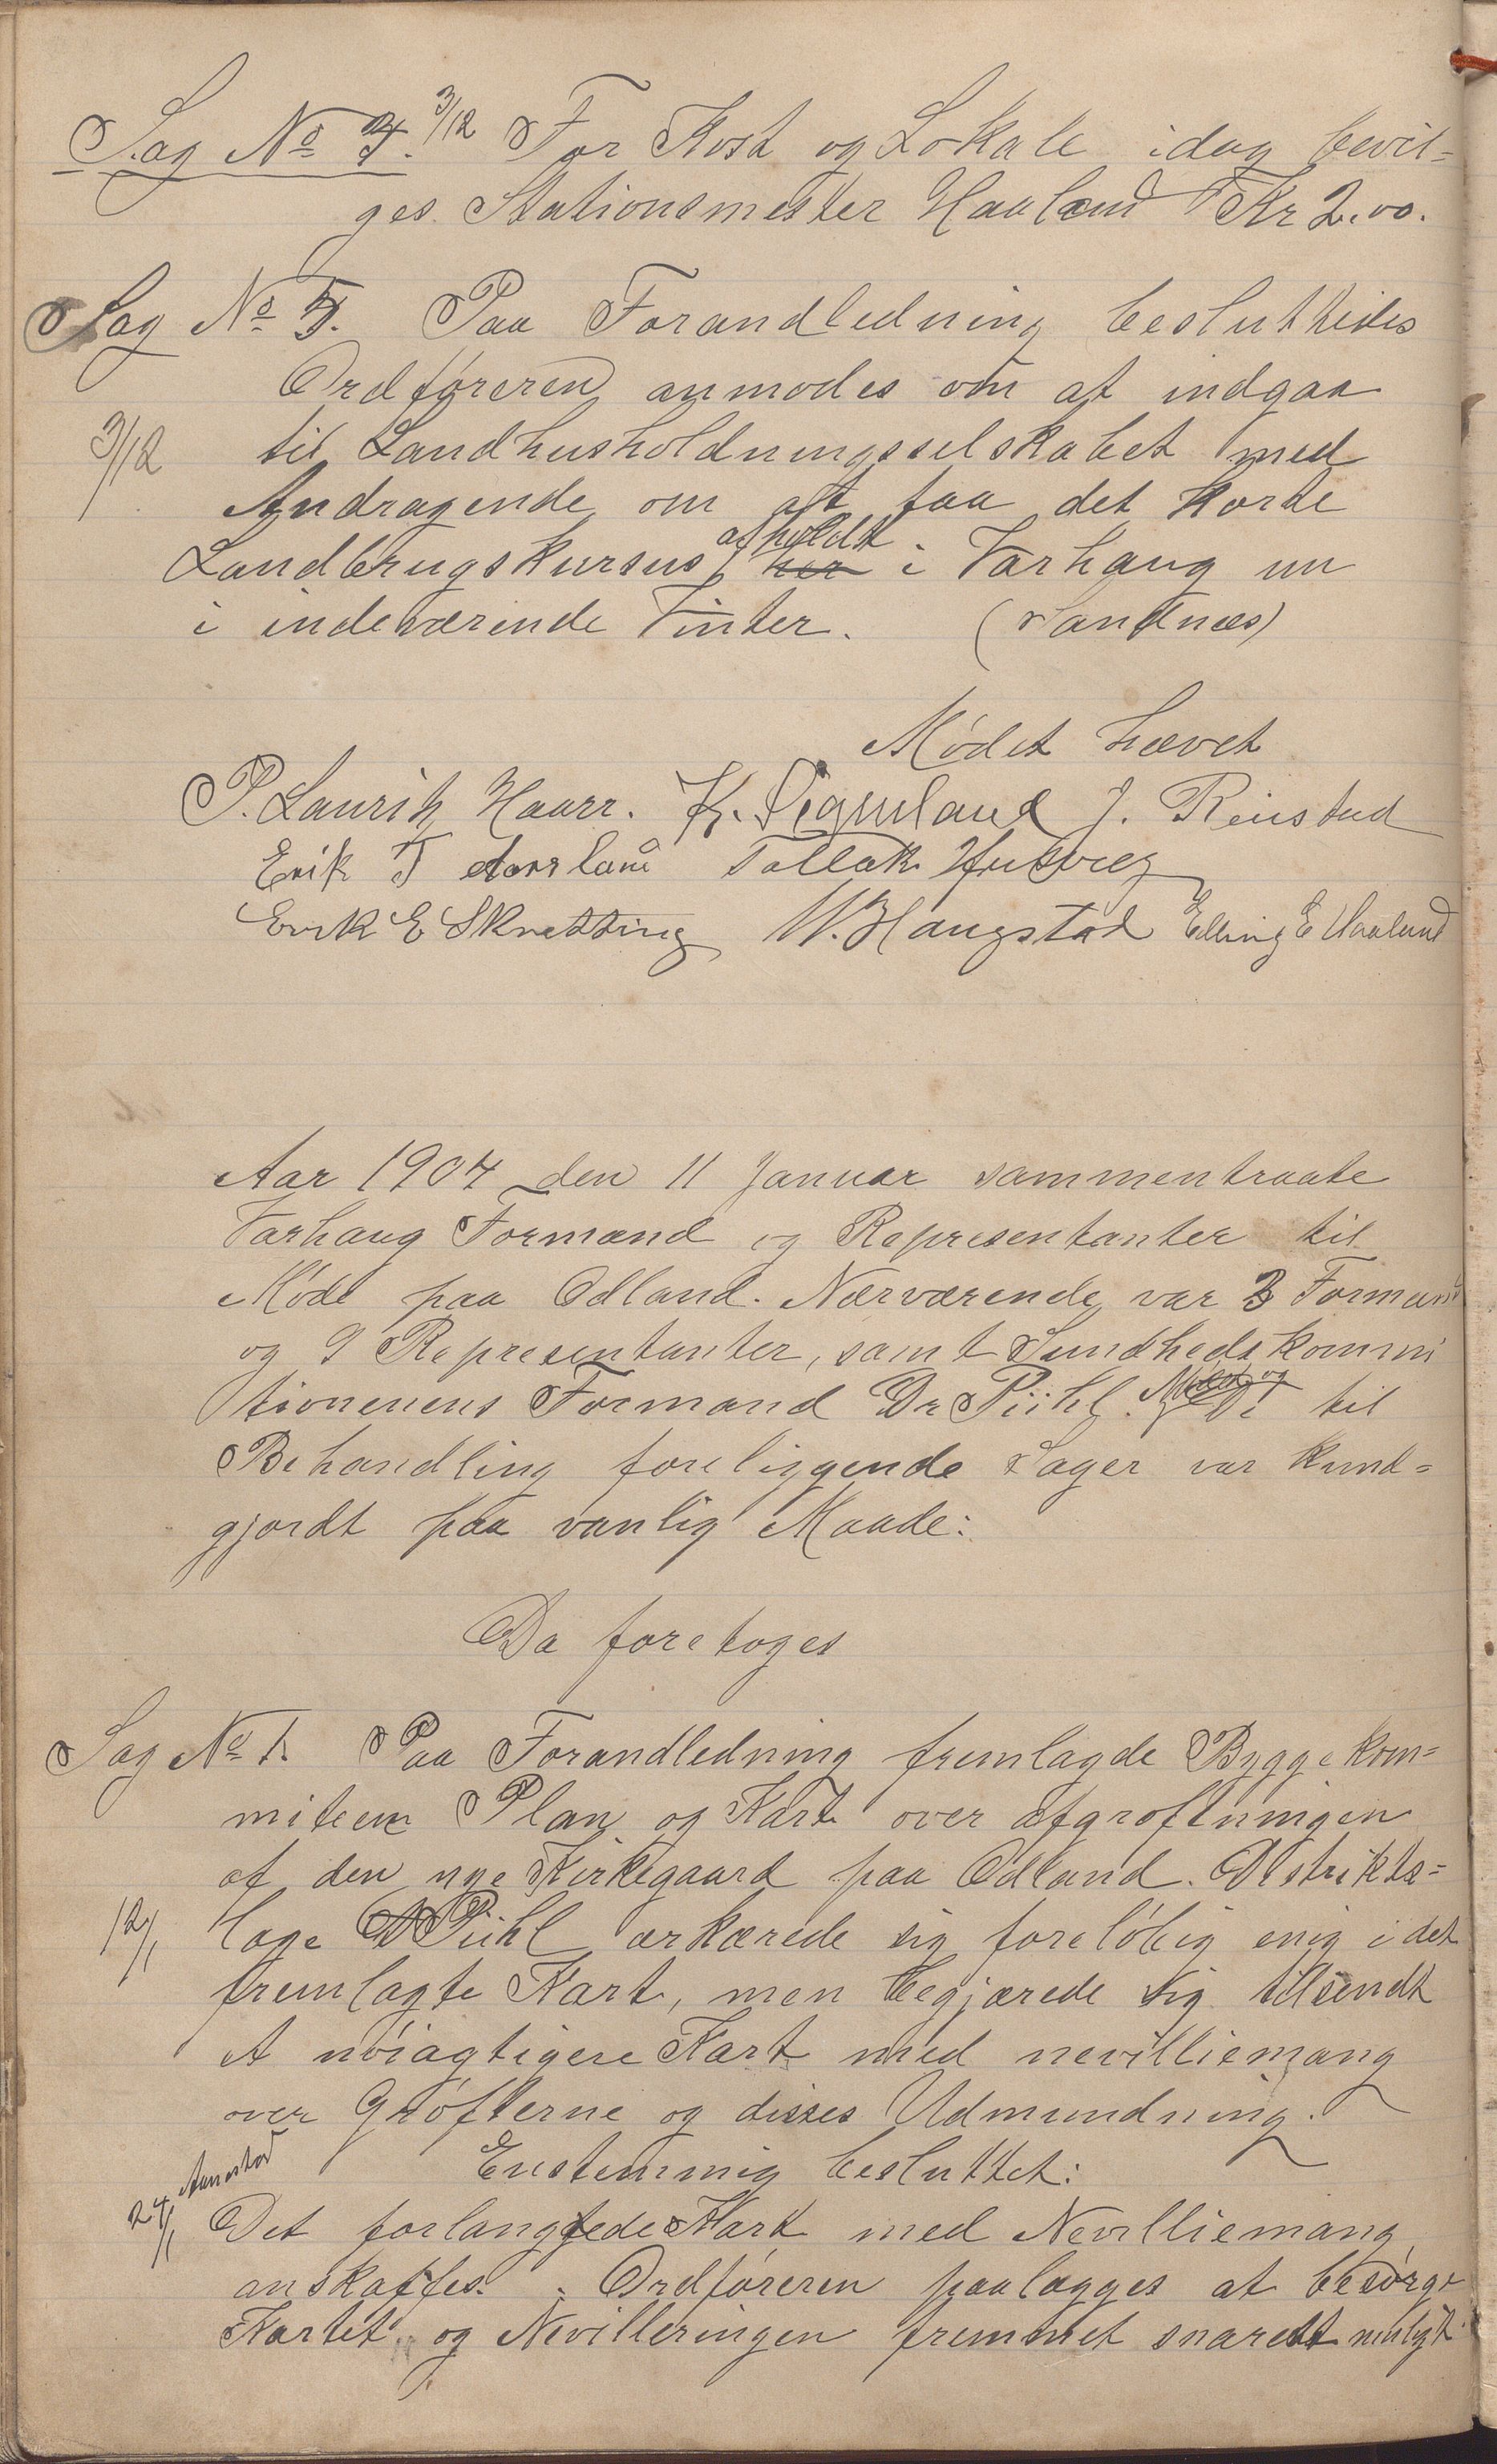 Sag No 4. 3/12 For Kost og Lokale idag bevil=
ges Stationsmester Haaland Kr 2.00.
Sag No 5. Paa Forandledning besluttedes
Ordføreren anmodes om at indgaa
3/12 til Landhusholdningsselskabet med
Andragende om at faa det korte
Landbrugskursus afholdt her i Varhaug nu
i indeværende Vinter. (Sandnæs)
Mødet hævet
P. Lauritz Haarr. K. Sigmland J. Reistad
Erik T Aarsland Tollak Husvæg
Erik E Skretting W. Haugstad Elling E Haaland
Aar 1904 den 11 Januar sammentraate
Varhaug Formænd og Representanter til
Møde paa Odland. Nærværende var 3 Formænd
og 9 Representanter, samt Sundhedskommi
tionenens Formand Dr Piihl. Mødet og De til
Behandling foreliggende Sager var kund=
gjordt paa vanlig Maade:
Da foretoges
Sag No 1. Paa Forandledning fremlagde Byggekom=
miteen Plan og Kart over afgrøftningen
af den nye Kirkegaard paa Odland. Distrikts=
12/1 læge Piihl erkærede sig foreløbig enig i det
fremlagte Kart, men begjærede sig tilsendt
et nøiagtigere Kart med nevilliemang
over Grøfterne og disses Udmundning.
Enstemmig besluttet:
24/1 Aanestad
Det forlangtede Kart med Nevilliemang
anskaffes. Ordføreren paalægges at besørge
Kartet og Nevilleringen fremmet snarest muligt.